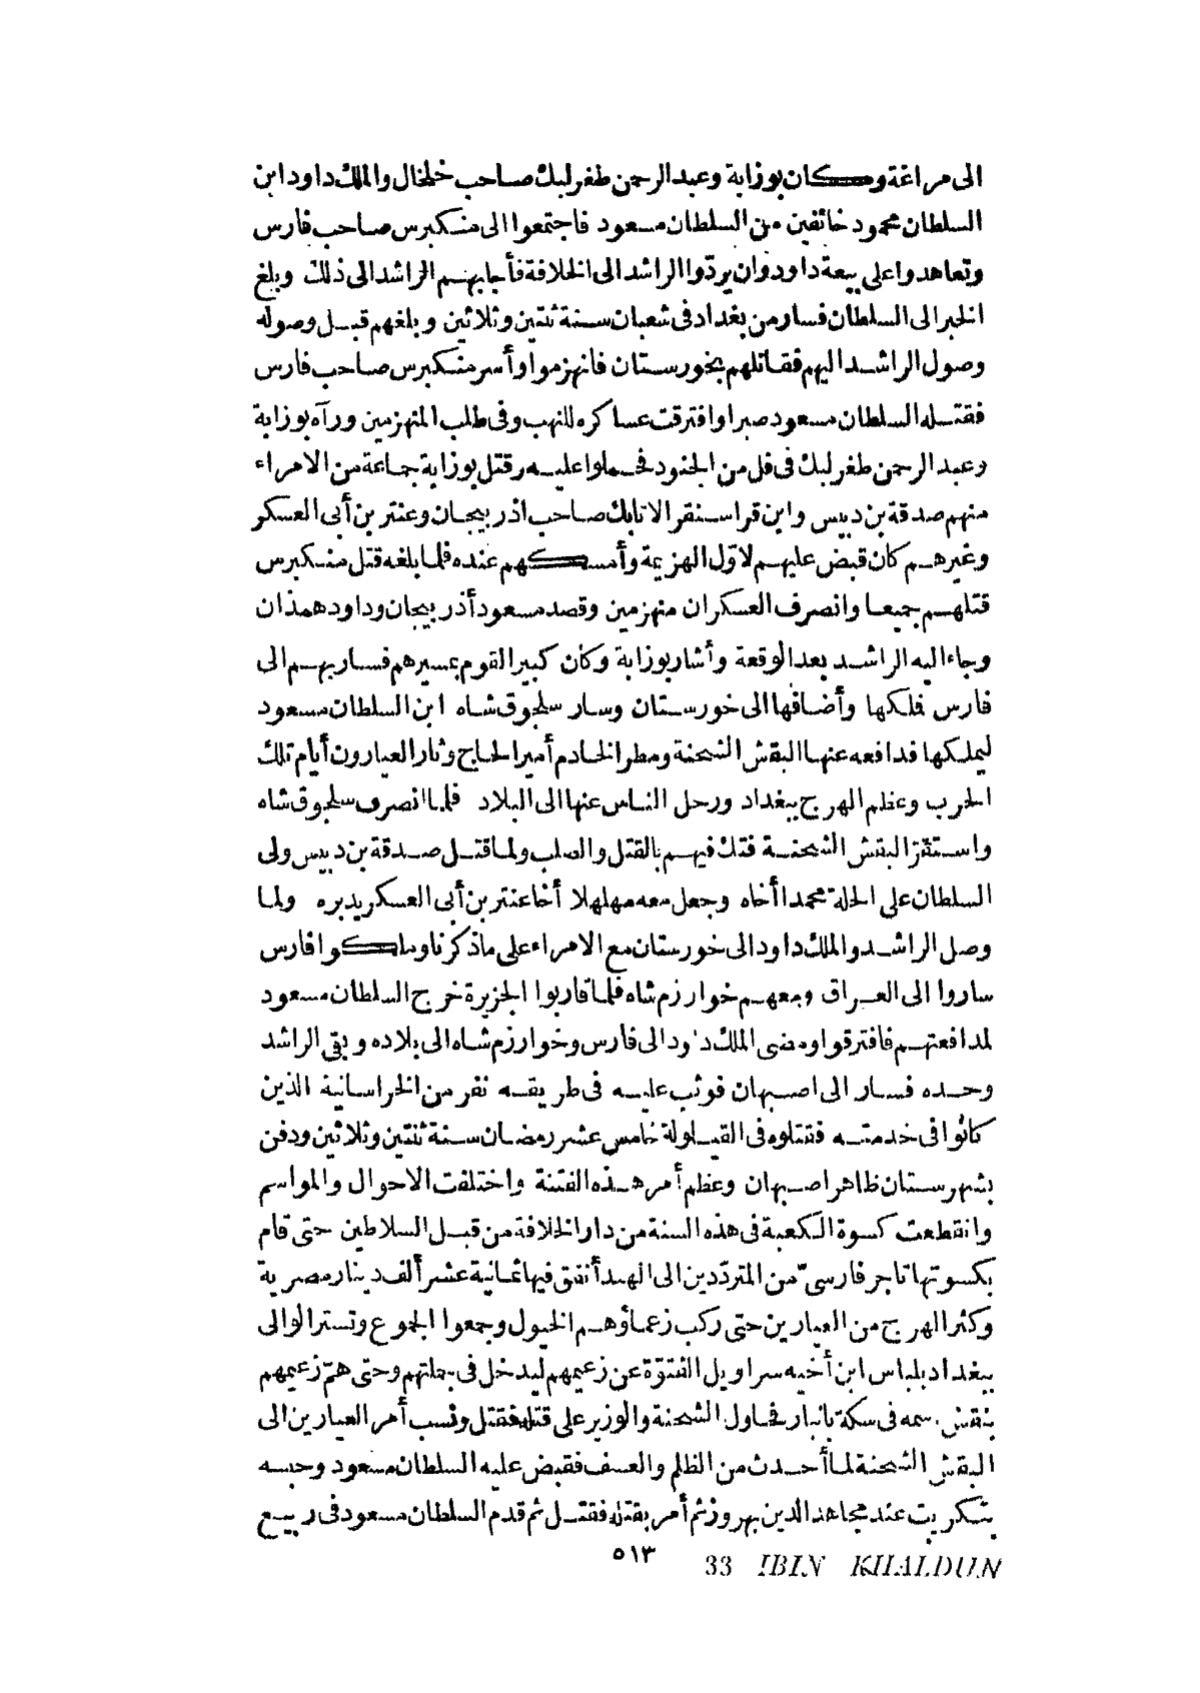 الى مراغة وكان بوزابة وعبد الرحمن طغرلبك صاحب خلخال والملك داود ابن
السلطان محمود خائفين من السلطان مسعود فاجتمعوا الى منكبرس صاحب فارس
وتعاهدوا على بيعة داود وان يردّوا الراشد الى الخلافة فأجابهم الراشد الى ذلك وبلغ
الخبر الى السلطان فسار من بغداد فى شعبان سنة ثنتين وثلاثين وبلغهم قبل وصوله
وصول الراشد اليهم فقاتلهم بخورستان فانهزموا وأسر منكبرس صاحب فارس
فقتله السلطان مسعود صبرا وافترقت عساكره للنهب وفى طلب المنهزمين ورآه بوزابة
وعبد الرحمن طغرلبك فى فل من الجنود فحملوا عليه وقتل بوزابة جماعة من الامراء
منهم صدقة بن دبيس وابن قراسنقر الاتابك صاحب اذربيجان وعنتر بن أبى العسكر
وغيرهم كان قبض عليهم لاوّل الهزيمة وأمسكهم عنده فلما بلغه قتل منكبرس
قتلهم جميعا وانصرف العسكران منهزمين وقصد مسعود أذربيجان وداود همذان
وجاء اليه الراشد بعد الوقعة وأشار بوزابة وكان كبير القوم بمسيرهم فسار بهم الى
فارس فملكها وأضافها الى خورستان وسار سلجوق شاه ابن السلطان مسعود
ليملكها فدافعه عنها البقش الشحنة ومطر الخادم أمير الحاج وثار العيارون أيام تلك
الحرب وعظم الهرج ببغداد ورحل الناس عنها الى البلاد فلما انصرف سلجوق شاه
واستقرّ البقش الشحنة فتك فيهم بالقتل والصلب ولما قتل صدقة بن دبيس ولى
السلطان على الحلة محمدا أخاه وجعل معه مهلهلا أخا عنتر بن أبى العسكر يدبره ولما
وصل الراشد والملك داود الى خورستان مع الامراء على ماذكرناوملكوا فارس
ساروا الى العراق ومعهم خوارزم شاه فلما قاربوا الجزيرة خرج السلطان مسعود
لمدافعتهم فافترقوا ومضى الملك داود الى فارس وخوارزم شاه الى بلاده وبقى الراشد
وحده فسار الى اصبهان فوثب عليه فى طريقه نفر من الخراسانية الذين
كانوا فى خدمته فقتلوه فى القيلولة خامس عشر رمضان سنة ثنتين وثلاثين ودفن
بشهرستان ظاهر اصبهان وعظم أمر هذه الفتنة واختلفت الاحوال والمواسم
وانقطعت كسوة الكعبة فى هذه السنة من دار الخلافة من قبل السلاطين حتى قام
بكسوتها تاجر فارسىّ من المتردّدين الى الهند أنفق فيها ثمانية عشر ألف دينار مصرية
وكثر الهرج من العيارين حتى ركب زعماؤهم الخيول وجمعوا الجموع وتستر الوالى
ببغداد بلباس ابن أخيه سراويل الفتوّة عن زعيمهم ليدخل فى جملتهم وحتى همّ زعيمهم
بنقش اسمه فى سكة بانبار فحاول الشحنة والوزير على قتله فقتل ونسب أمر العيارين الى
البقش الشحنة لما أحدث من الظلم والعسف فقبض عليه السلطان مسعود وحبسه
بتكريت عند مجاهد الدين بهروز ثم أمر بقتله فقتل ثم قدم السلطان مسعود فى ربيع
٥١٣ 33 IBIN KHALDUN